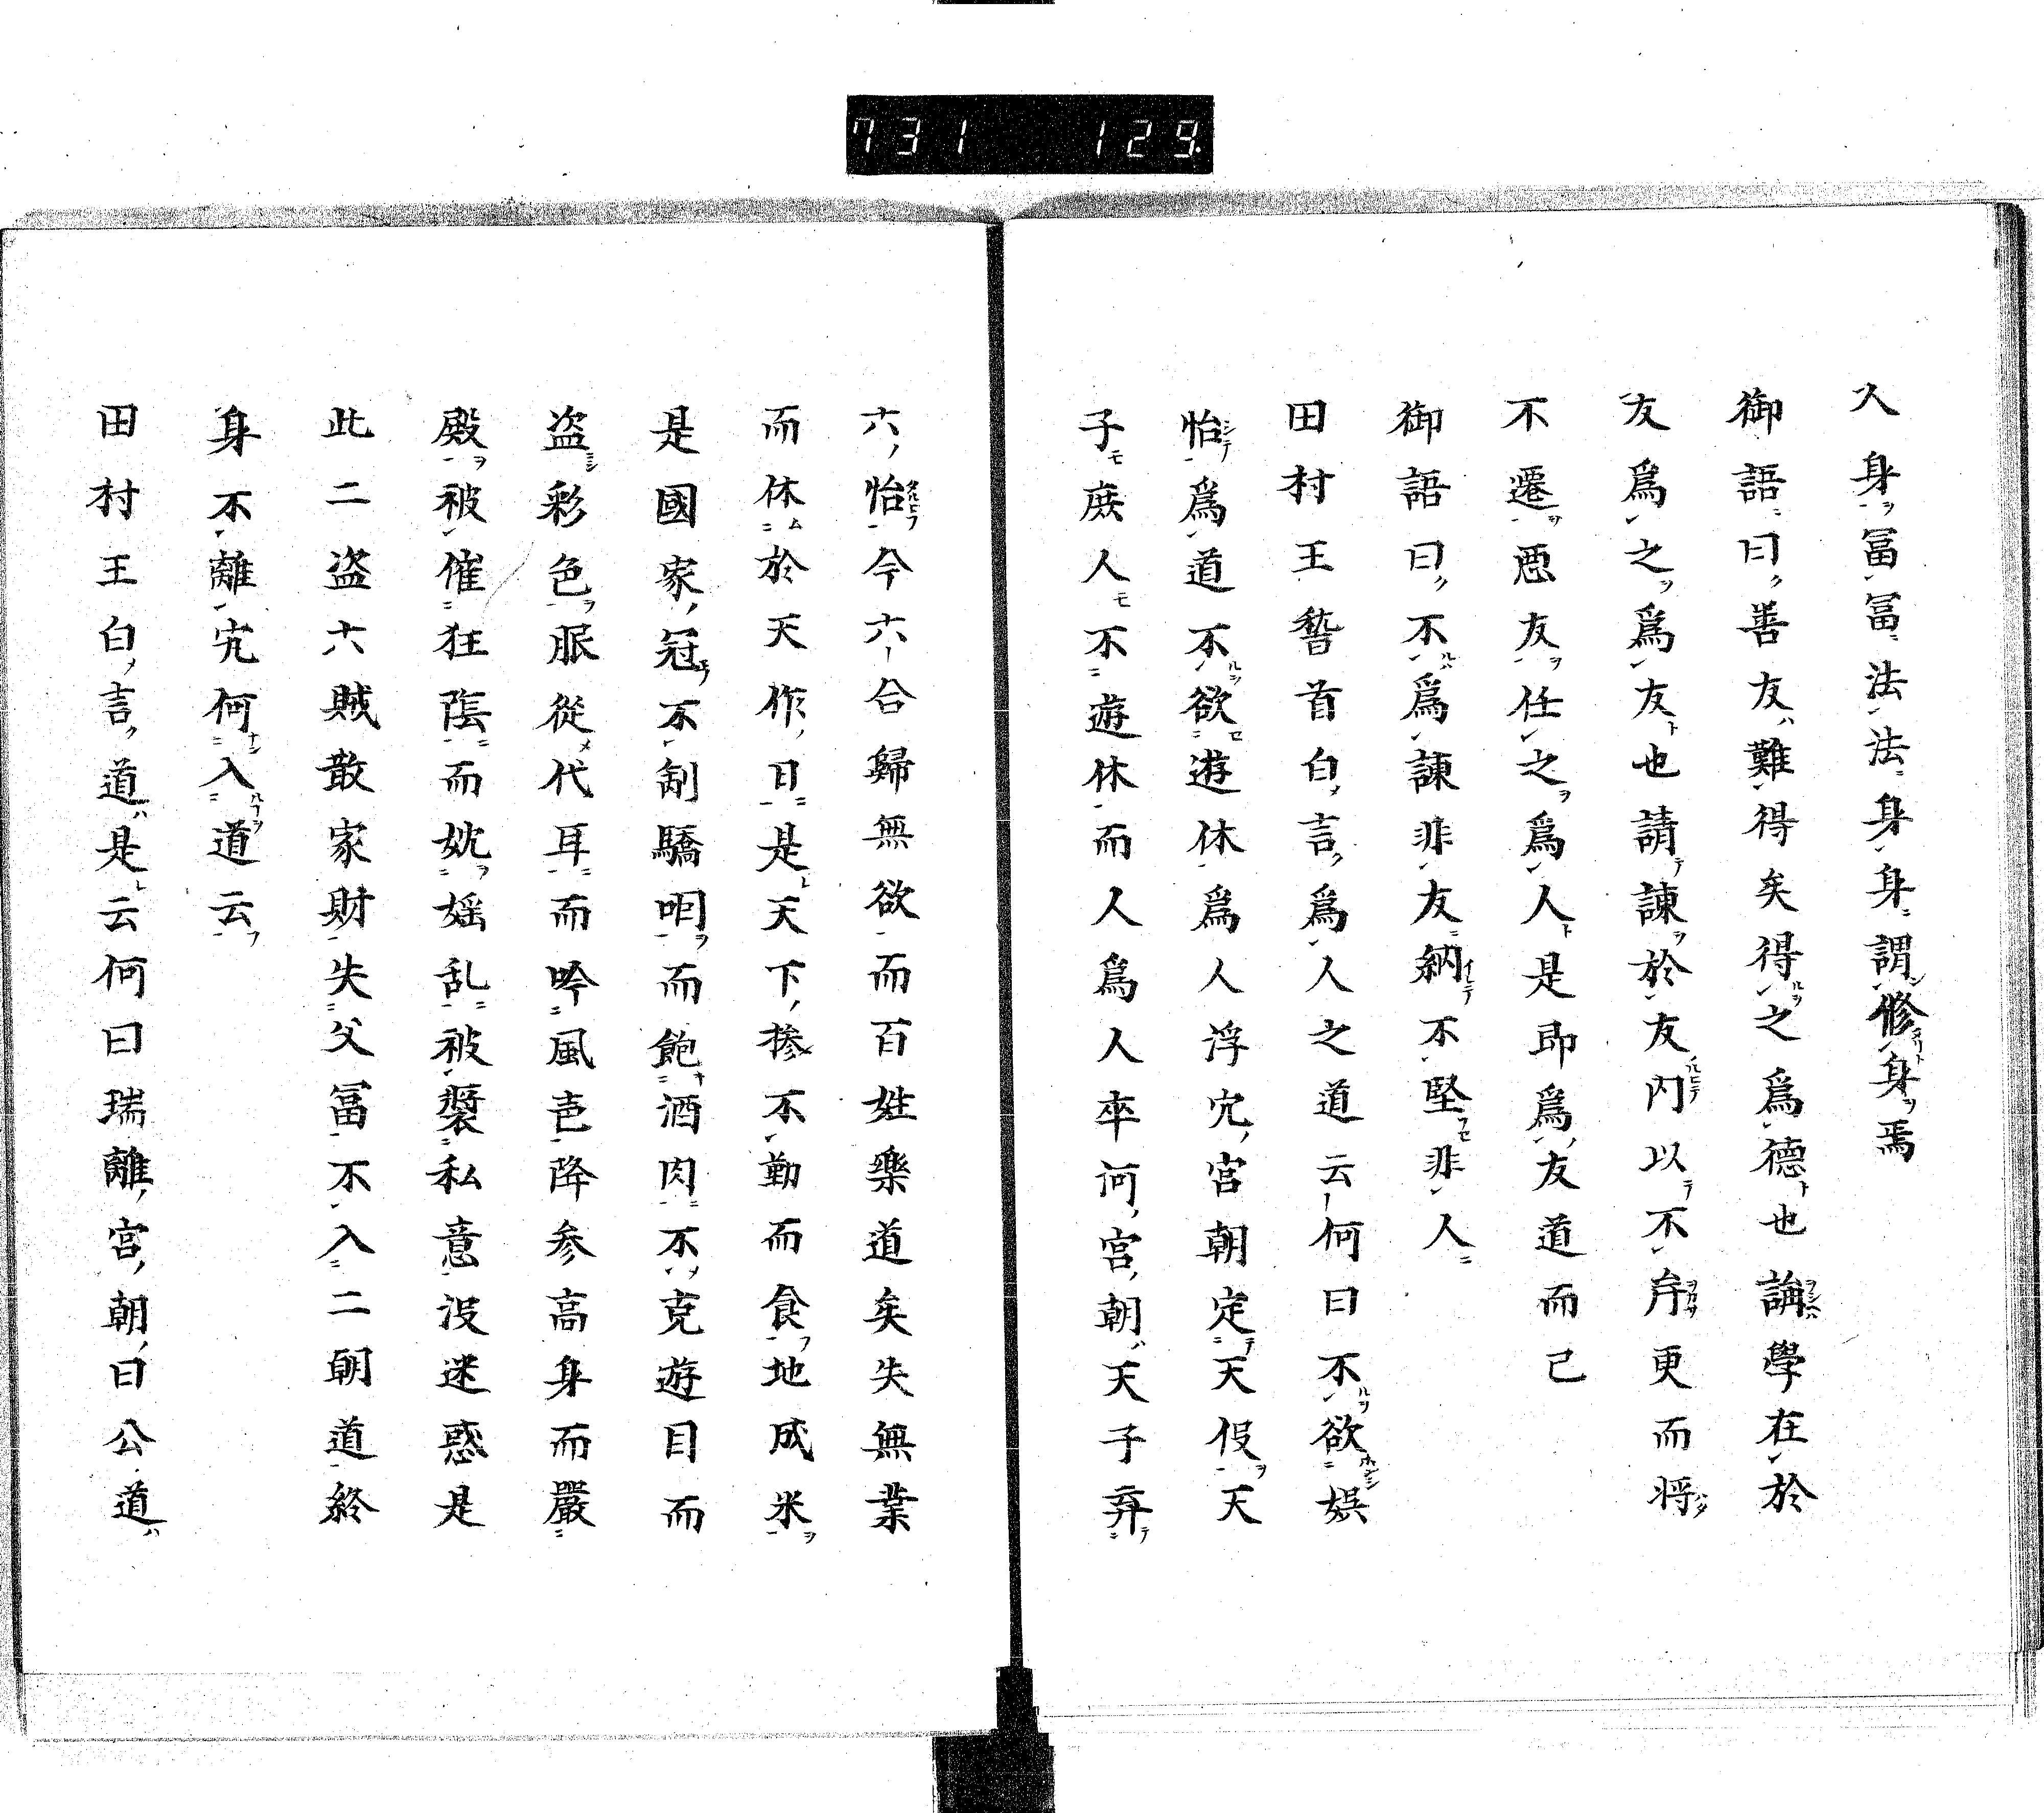 731 129
久身冨冨法法身身謂修身焉
御語曰善友難得矣得之爲德也講學在於
友爲之爲友也請諫於友内以不弁更而将
不遷惡友任之爲人是即爲友道而已
御語曰不爲諫非友納不堅非人
田村王稽首白言爲人之道云何曰不欲娯
怡爲道不欲遊休爲人浮宂宮朝定天假天
子庶人不遊休而人爲人卒何宮朝天子弃
六怡今六合歸無欲而百姓樂道矣失無業
而休於天作日是天下掺不勤而食地成米
是國家冠不制驕咱而飽酒肉不克遊目而
盗彩色服從代耳而吟風壱降参高身而嚴
殿被催狂蔭而妣婬乱被襲私意没迷惑是
此二盗六賊散家財失父冨不入二朝道終
身不離宂何入道云
田村王白言道是云何曰瑞離宮朝曰公道